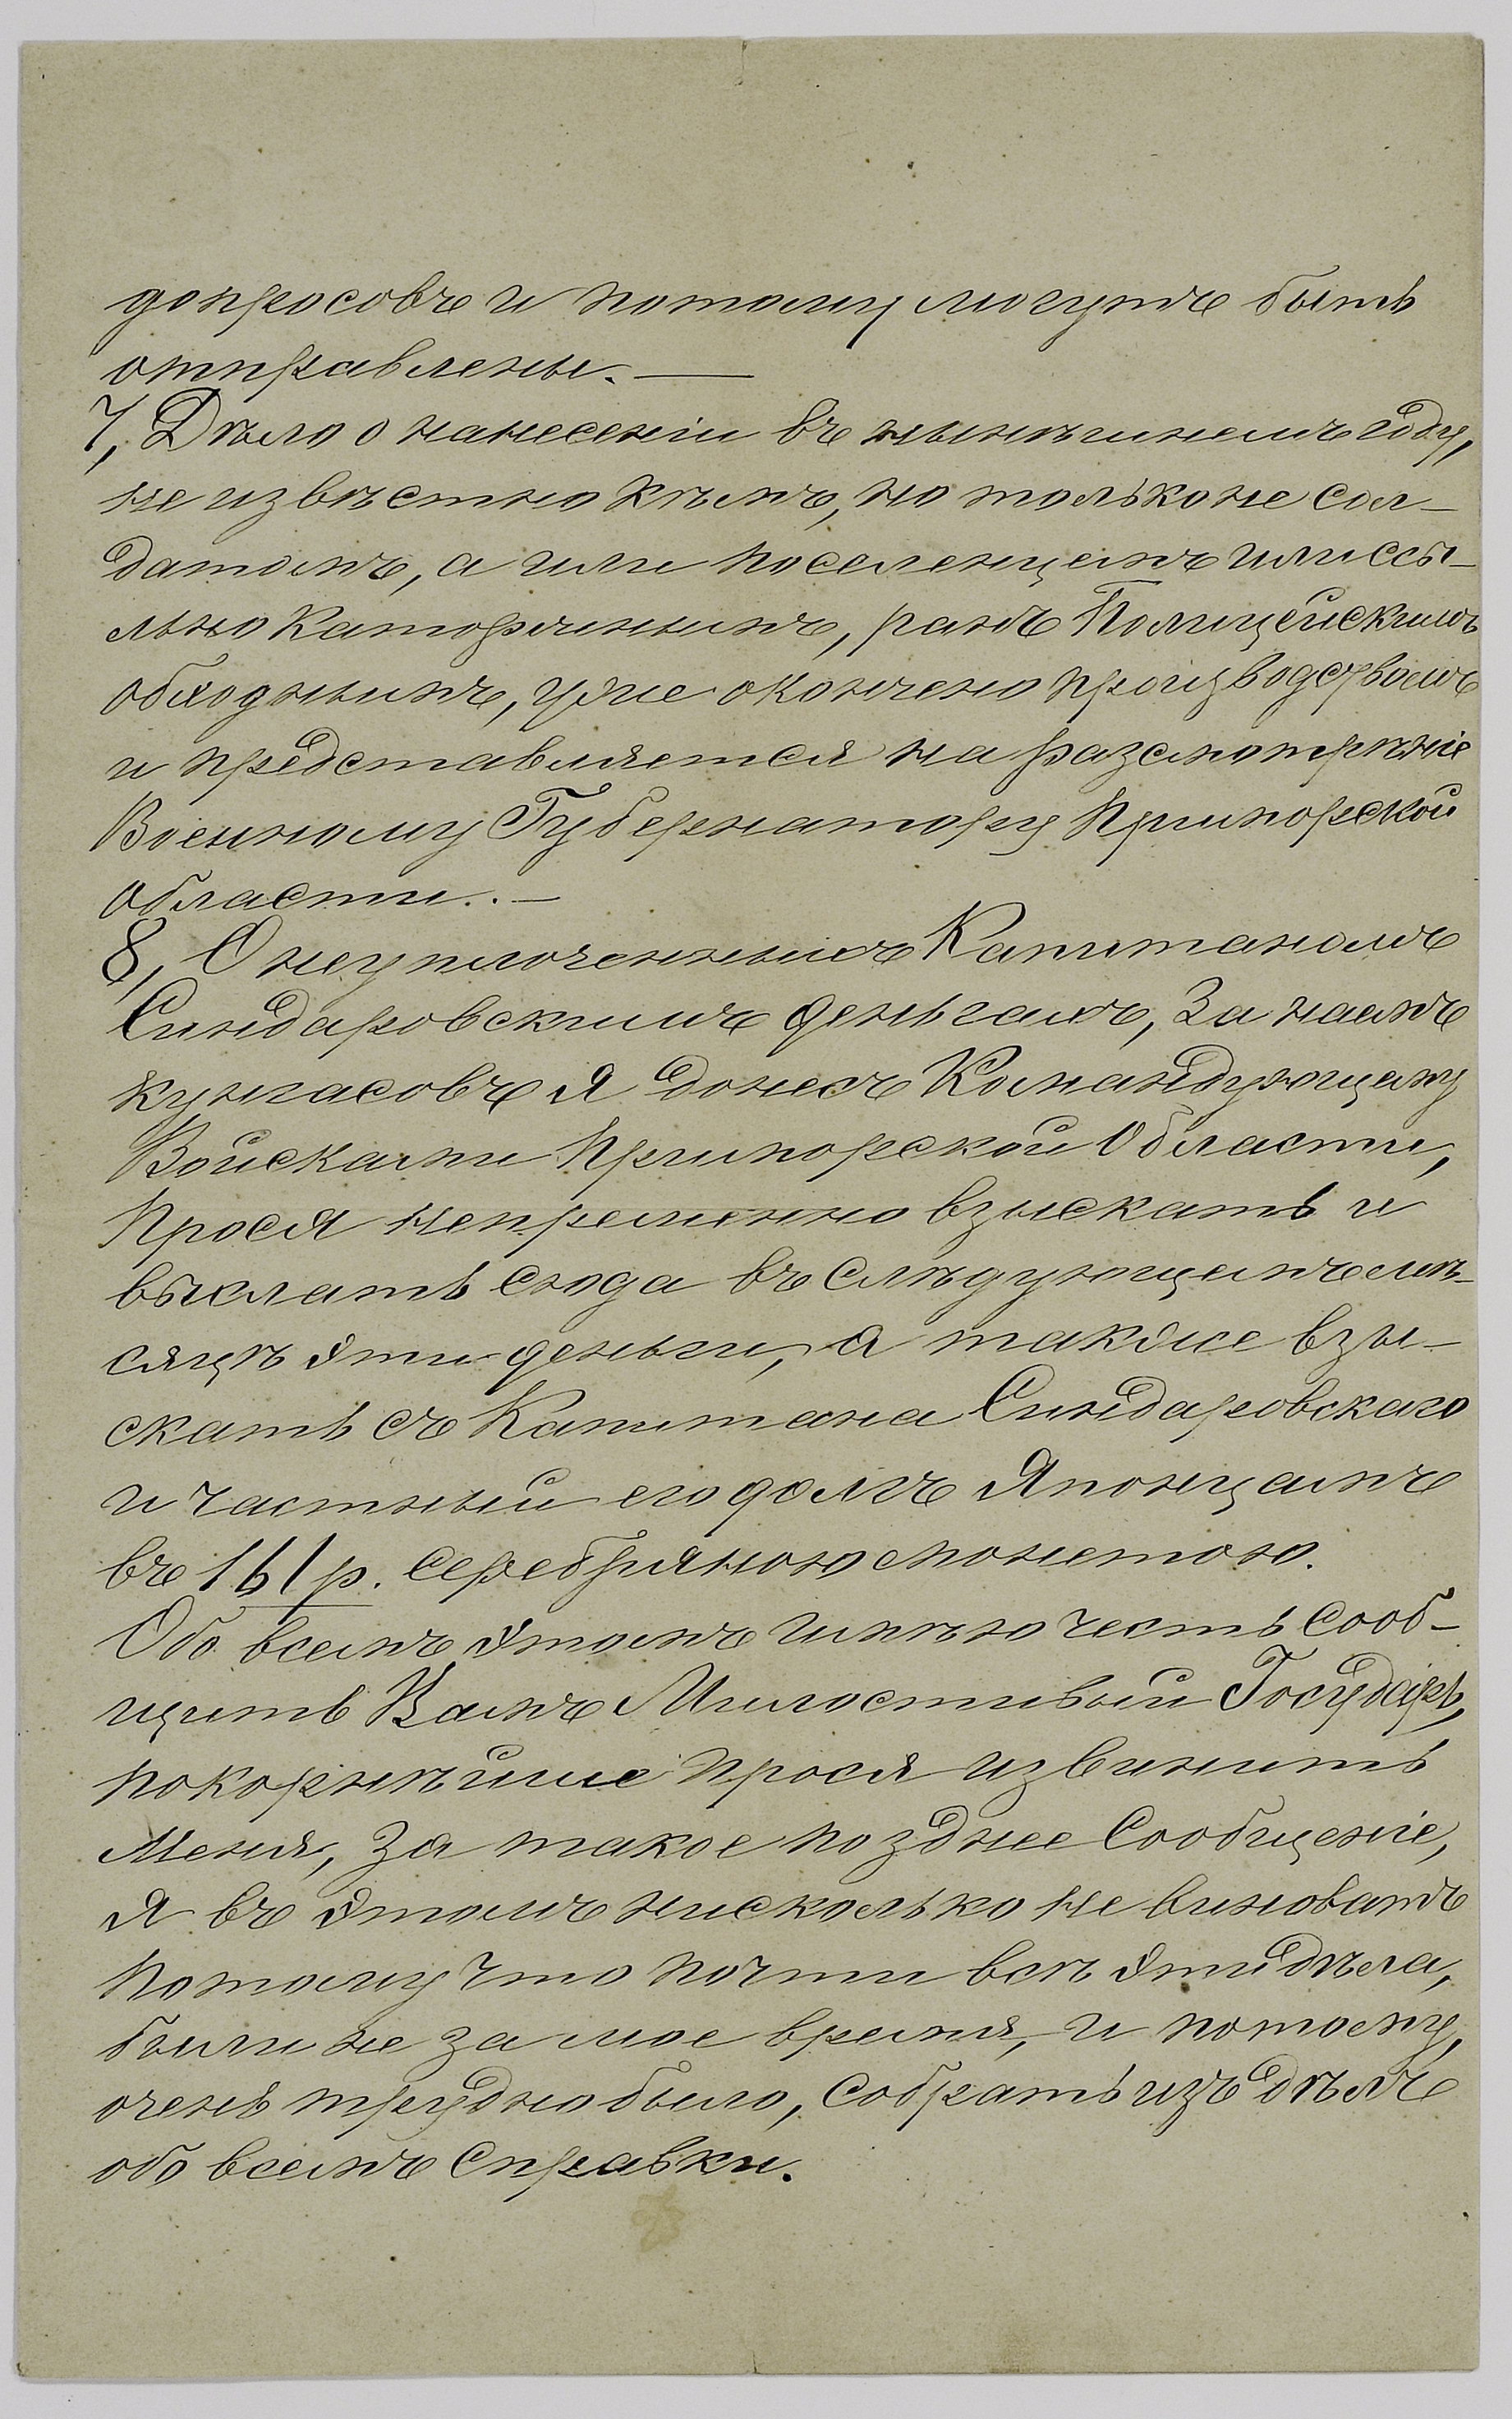 допросовъ и потому могутъ быть
отправлены. —
7, Дѣло о нанесеніи въ нынѣшнемъ году,
не извѣстно кѣмъ, но только не сол-
датомъ, а или поселенцемъ или ссы-
льно каторжнымъ, ранъ Полицейскимъ
обходнымъ, уже окончено производствомъ
и представляется на разсмотрѣніе
Военному Губернатору Приморской
области. —
8, О неуплоченныхъ Капитаномъ
Синдаровскимъ деньгахъ, За наемъ
кунгасовъ я донесъ Командующему
Войсками Приморской Области,
Прося непременно взыскать и
выслать сюда въ слѣдующемъ мѣ-
сяцѣ эти деньги, а также взы-
скать съ Капитана Синдаровскаго
и частный его долгъ Японцамъ
въ 161 р. серебряною монетою.
Обо всемъ этомъ имѣю честь сооб-
щить Вамъ Милостивый Государь,
покорнѣйше прося извинить
Меня, За такое позднее Сообщеніе,
я въ этомъ нисколько не виноватъ
потому что почти всѣ эти дѣла,
были не за мое время, и потому,
очень трудно было, собрать изъ дѣлъ
обо всемъ справки.